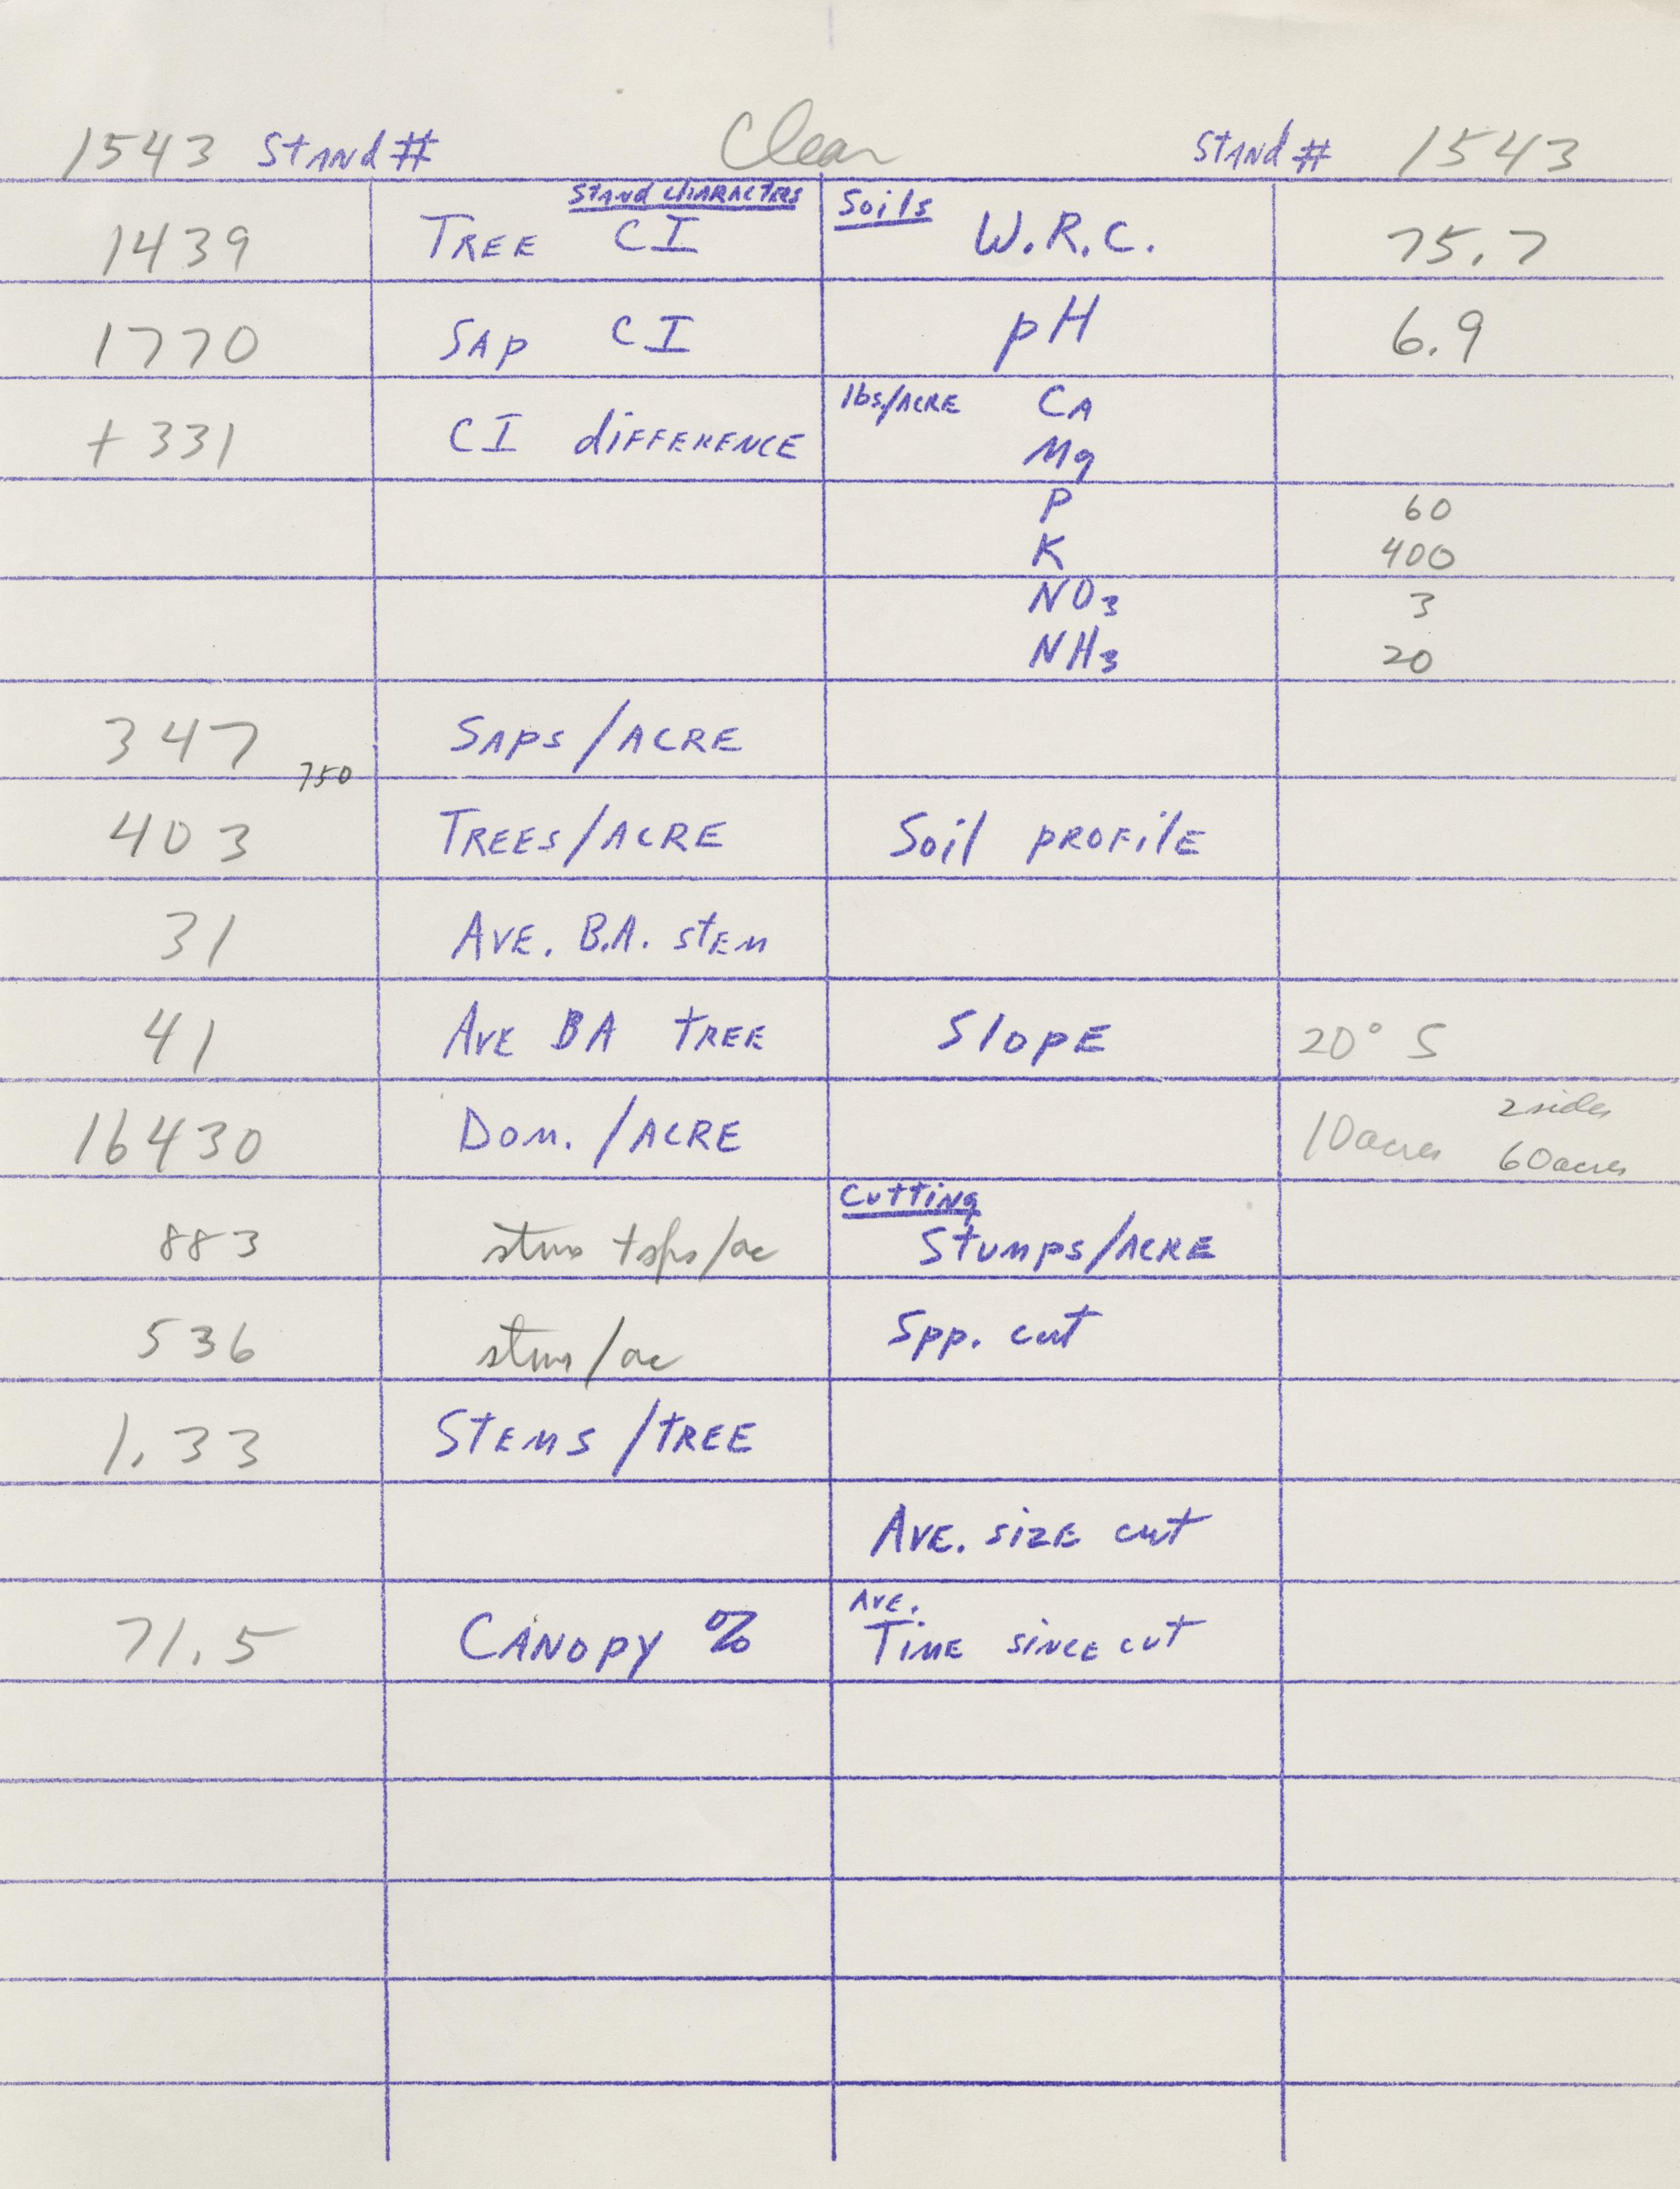 1543 Stand # Clear Stand # 1543
Stand Characters Soils
1439 Tree CI W.R.C. 75.7
1770 Sap CI pH 6.9
+331 CI difference lbs/acre Ca
Mg
P 60
K 400
NO3 3
NH3 20
347 Saps/acre
750
403 Trees/acre Soil profile
31 Ave. B.A. stem
41 Ave BA tree Slope 20° S
16430 Dom./acre 10 acres 2 sides 60 acres
Cutting
883 stms + sps/ac Stumps/acre
536 stms/ac Spp. cut
1.33 Stems/tree
Ave. size cut
71.5 Canopy % Ave. Time since cut